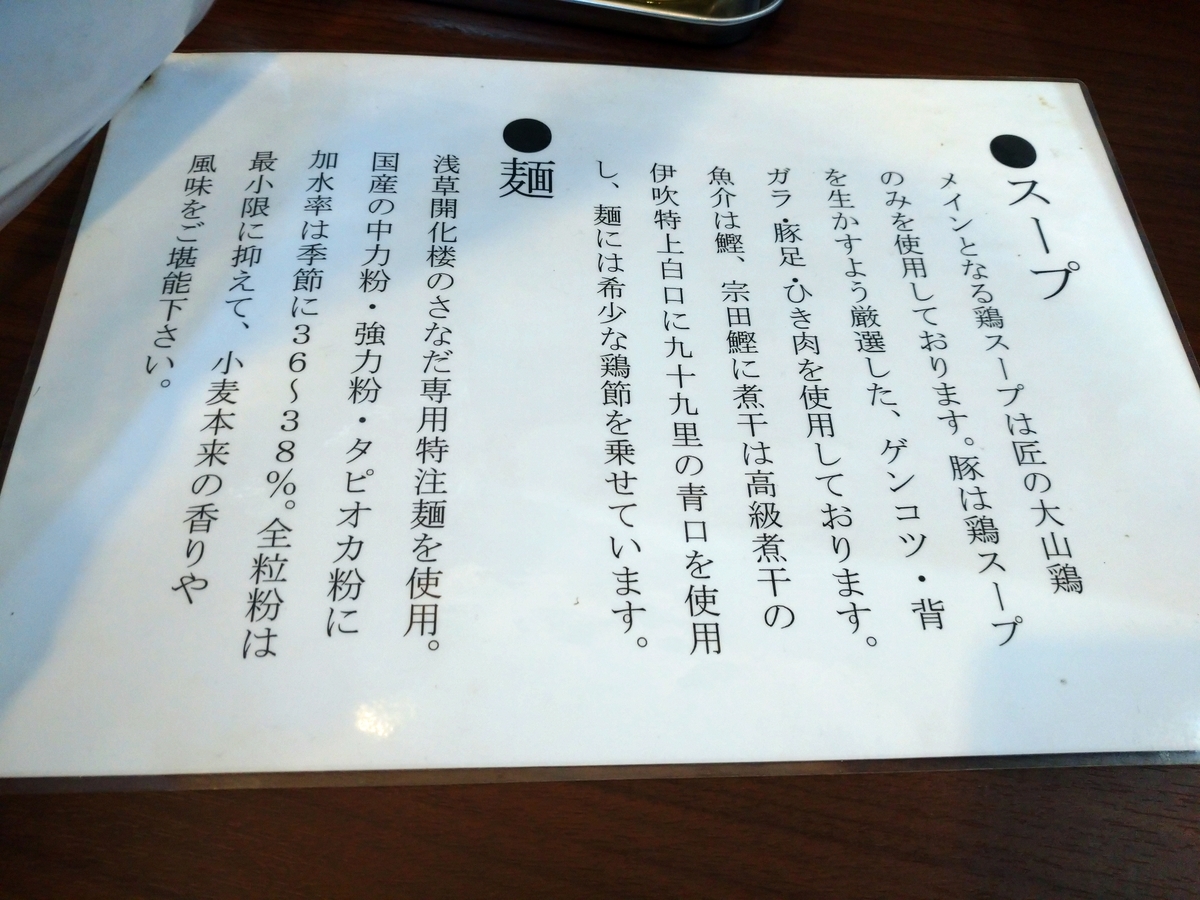 ●スープ
メインとなる鶏スープは匠の大山鶏
のみを使用しております。豚は鶏スープ
を生かすよう厳選した、ゲンコツ・背
ガラ・豚足・ひき肉を使用しております。
魚介は鰹、宗田鰹に煮干は高級煮干の
伊吹特上白口に九十九里の青口を使用
し、麺には希少な鶏節を乗せています。
●麺
浅草開化楼のさなだ専用特注麺を使用。
国産の中力粉・強力粉・タピオカ粉に
加水率は季節に36～38%。全粒粉は
最小限に抑えて、小麦本来の香りや
風味をご堪能下さい。